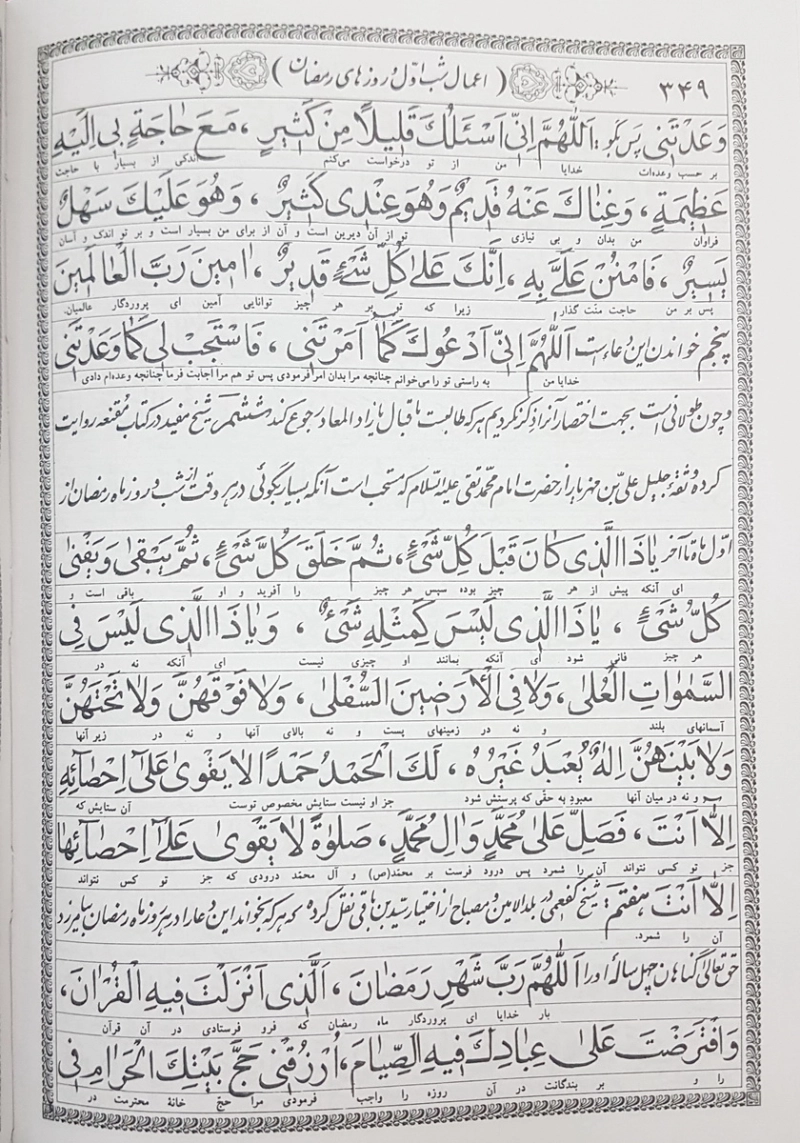 ۳۴۹ (اعمال شب اوّل و روزهای رمضان)
وَعَدْتَنی پس بگو: اَللّٰهُمَّ اِنّی اَسْئَلُكَ قَلیلًا مِنْ كَثیرٍ، مَعَ حٰاجَةٍ بی اِلَیْهِ
بر حسب وعده‌ات خدایا من از تو درخواست می‌کنم اندکی از بسیار با حاجت
عَظیمَةٍ، وَغِنٰاكَ عَنْهُ قَدیمٌ وَهُوَ عِنْدی كَثیرٌ، وَهُوَ عَلَیْكَ سَهْلٌ
فراوان من بدان و بی نیازی تو از آن دیرین است و آن از برای من بسیار است و بر تو اندک و آسان
یَسیرٌ، فَامْنُنْ عَلَیَّ بِهِ، اِنَّكَ عَلیٰ كُلِّ شَیْءٍ قَدیرٌ، اٰمینَ رَبَّ الْعٰالَمینَ
پس بر من حاجت منّت گذار زیرا که تو بر هر چیز توانایی آمین ای پروردگار عالمیان.
پنجم خواندن این دعاء است اَللّٰهُمَّ اِنّی اَدْعُوكَ كَمٰا اَمَرْتَنی، فَاسْتَجِبْ لی كَمٰا وَعَدْتَنی
خدایا من به راستی تو را می‌خوانم چنانچه مرا بدان امر فرمودی پس تو هم مرا اجابت فرما چنانچه وعده‌ام دادی
و چون طولانی است بجهت اختصار آنرا ذکر نکردیم هر که طالبست باقبال یا زاد المعاد رجوع کند ششم شیخ مفید در کتاب مقنعه روایت
کرده وثقهٔ جلیل علیّ بن مهزیار از حضرت امام محمّد تقی علیه السّلام که مستحب است آنکه بسیار بگوئی در هر وقت از شب و روز ماه رمضان از
اوّل ماه تا آخر یٰا ذَا الَّذی كٰانَ قَبْلَ كُلِّ شَیْءٍ، ثُمَّ خَلَقَ كُلَّ شَیْءٍ، ثُمَّ یَبْقیٰ وَیَفْنیٰ
ای آنکه پیش از هر چیز بوده سپس هر چیز را آفرید و او باقی است و
كُلُّ شَیْءٍ، یٰا ذَا الَّذی لَیْسَ كَمِثْلِهِ شَیْءٌ، وَیٰا ذَا الَّذی لَیْسَ فِی
هر چیز فانی شود ای آنکه بمانند او چیزی نیست ای آنکه نه در
السَّمٰوٰاتِ الْعُلیٰ، وَلٰا فِی الْاَرَضینَ السُّفْلیٰ، وَلٰا فَوْقَهُنَّ وَلٰا تَحْتَهُنَّ
آسمانهای بلند و نه در زمینهای پست و نه بالای آنها و نه در زیر آنها
وَلٰا بَیْنَهُنَّ اِلٰهٌ یُعْبَدُ غَیْرُهُ، لَكَ الْحَمْدُ حَمْدًا لٰا یَقْویٰ عَلیٰ اِحْصٰائِهِ
و نه در میان آنها معبود به حقّی که پرستش شود جز او نیست ستایش مخصوص توست آن ستایش که
اِلّٰا اَنْتَ، فَصَلِّ عَلیٰ مُحَمَّدٍ وَاٰلِ مُحَمَّدٍ، صَلٰوةً لٰا یَقْویٰ عَلیٰ اِحْصٰائِهٰا
جز تو کسی نتواند آن را شمرد پس درود فرست بر محمّد(ص) و آل محمّد درودی که جز تو کس نتواند
اِلّٰا اَنْتَ هفتم: شیخ کفعمی در بلد الامین و مصباح از اختیار سیّد بن باقی نقل کرده که هر که بخواند این دعا را در هر روز ماه رمضان بیامرزد
آن را شمرد.
حق تعالی گناهان چهل ساله او را اَللّٰهُمَّ رَبَّ شَهْرِ رَمَضٰانَ، اَلَّذی اَنْزَلْتَ فیهِ الْقُرْاٰنَ،
بار خدایا ای پروردگار ماه رمضان که فرو فرستادی در آن قرآن
وَافْتَرَضْتَ عَلیٰ عِبٰادِكَ فیهِ الصِّیٰامَ، اُرْزُقْنی حَجَّ بَیْتِكَ الْحَرٰامِ فی
را و بر بندگانت در آن روزه را واجب فرمودی مرا حجّ خانهٔ محترمت در